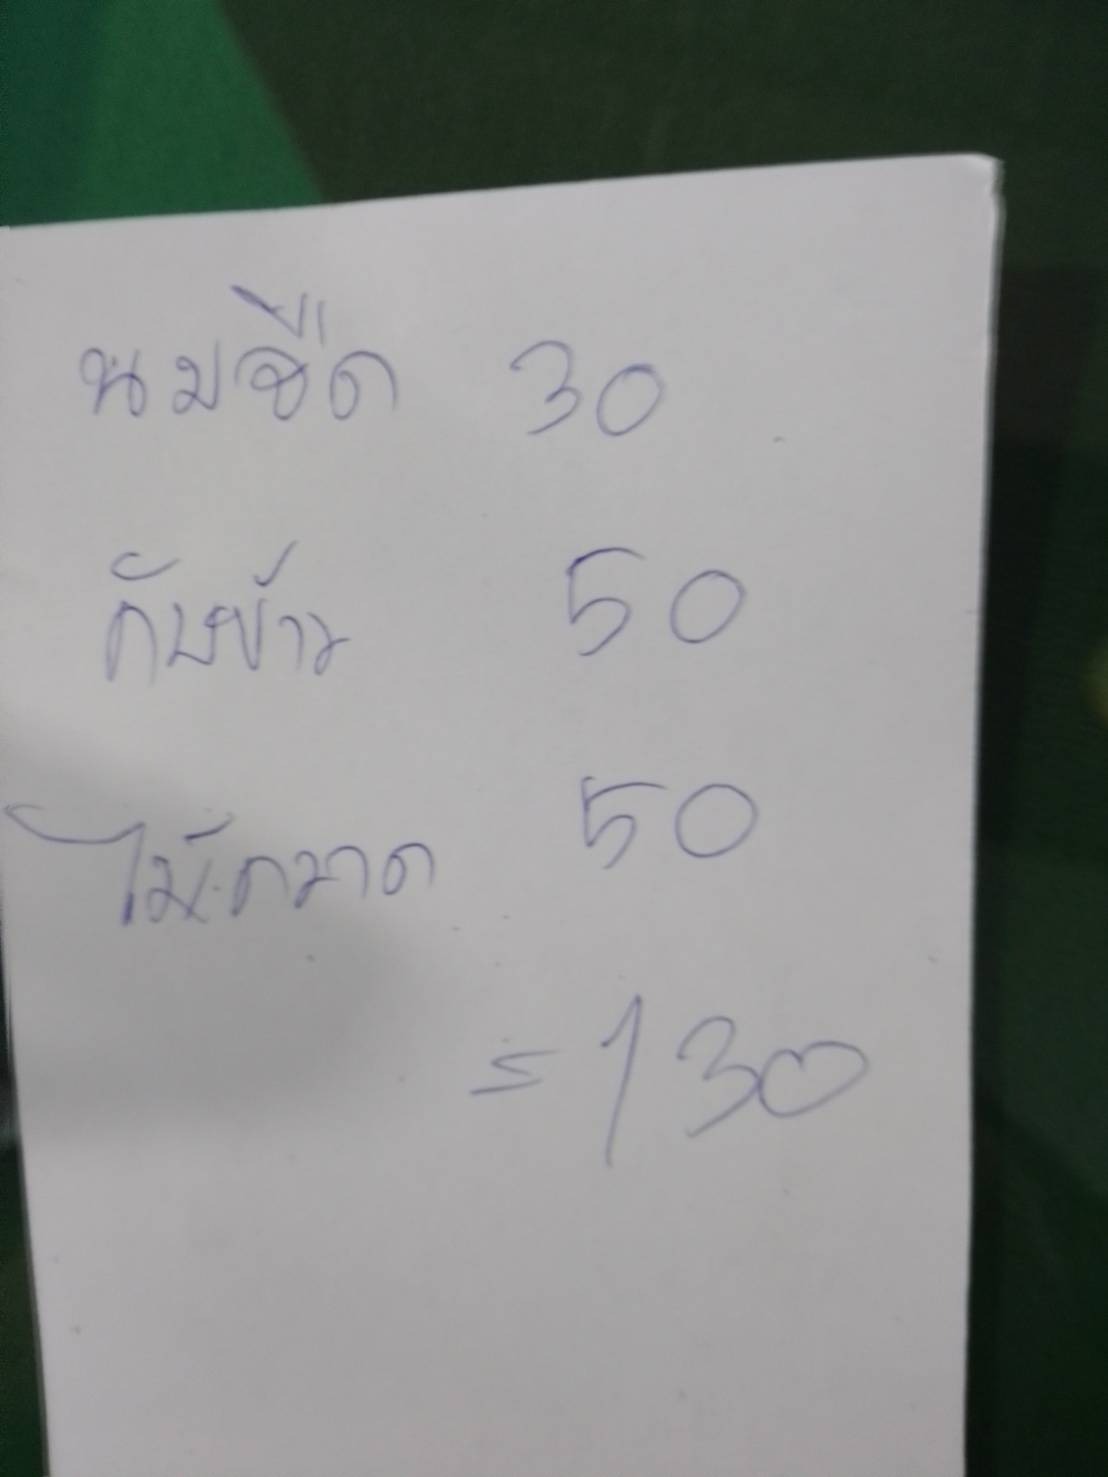 นมจืด 30
กับข้าว 50
ไม้กวาด 50
= 130